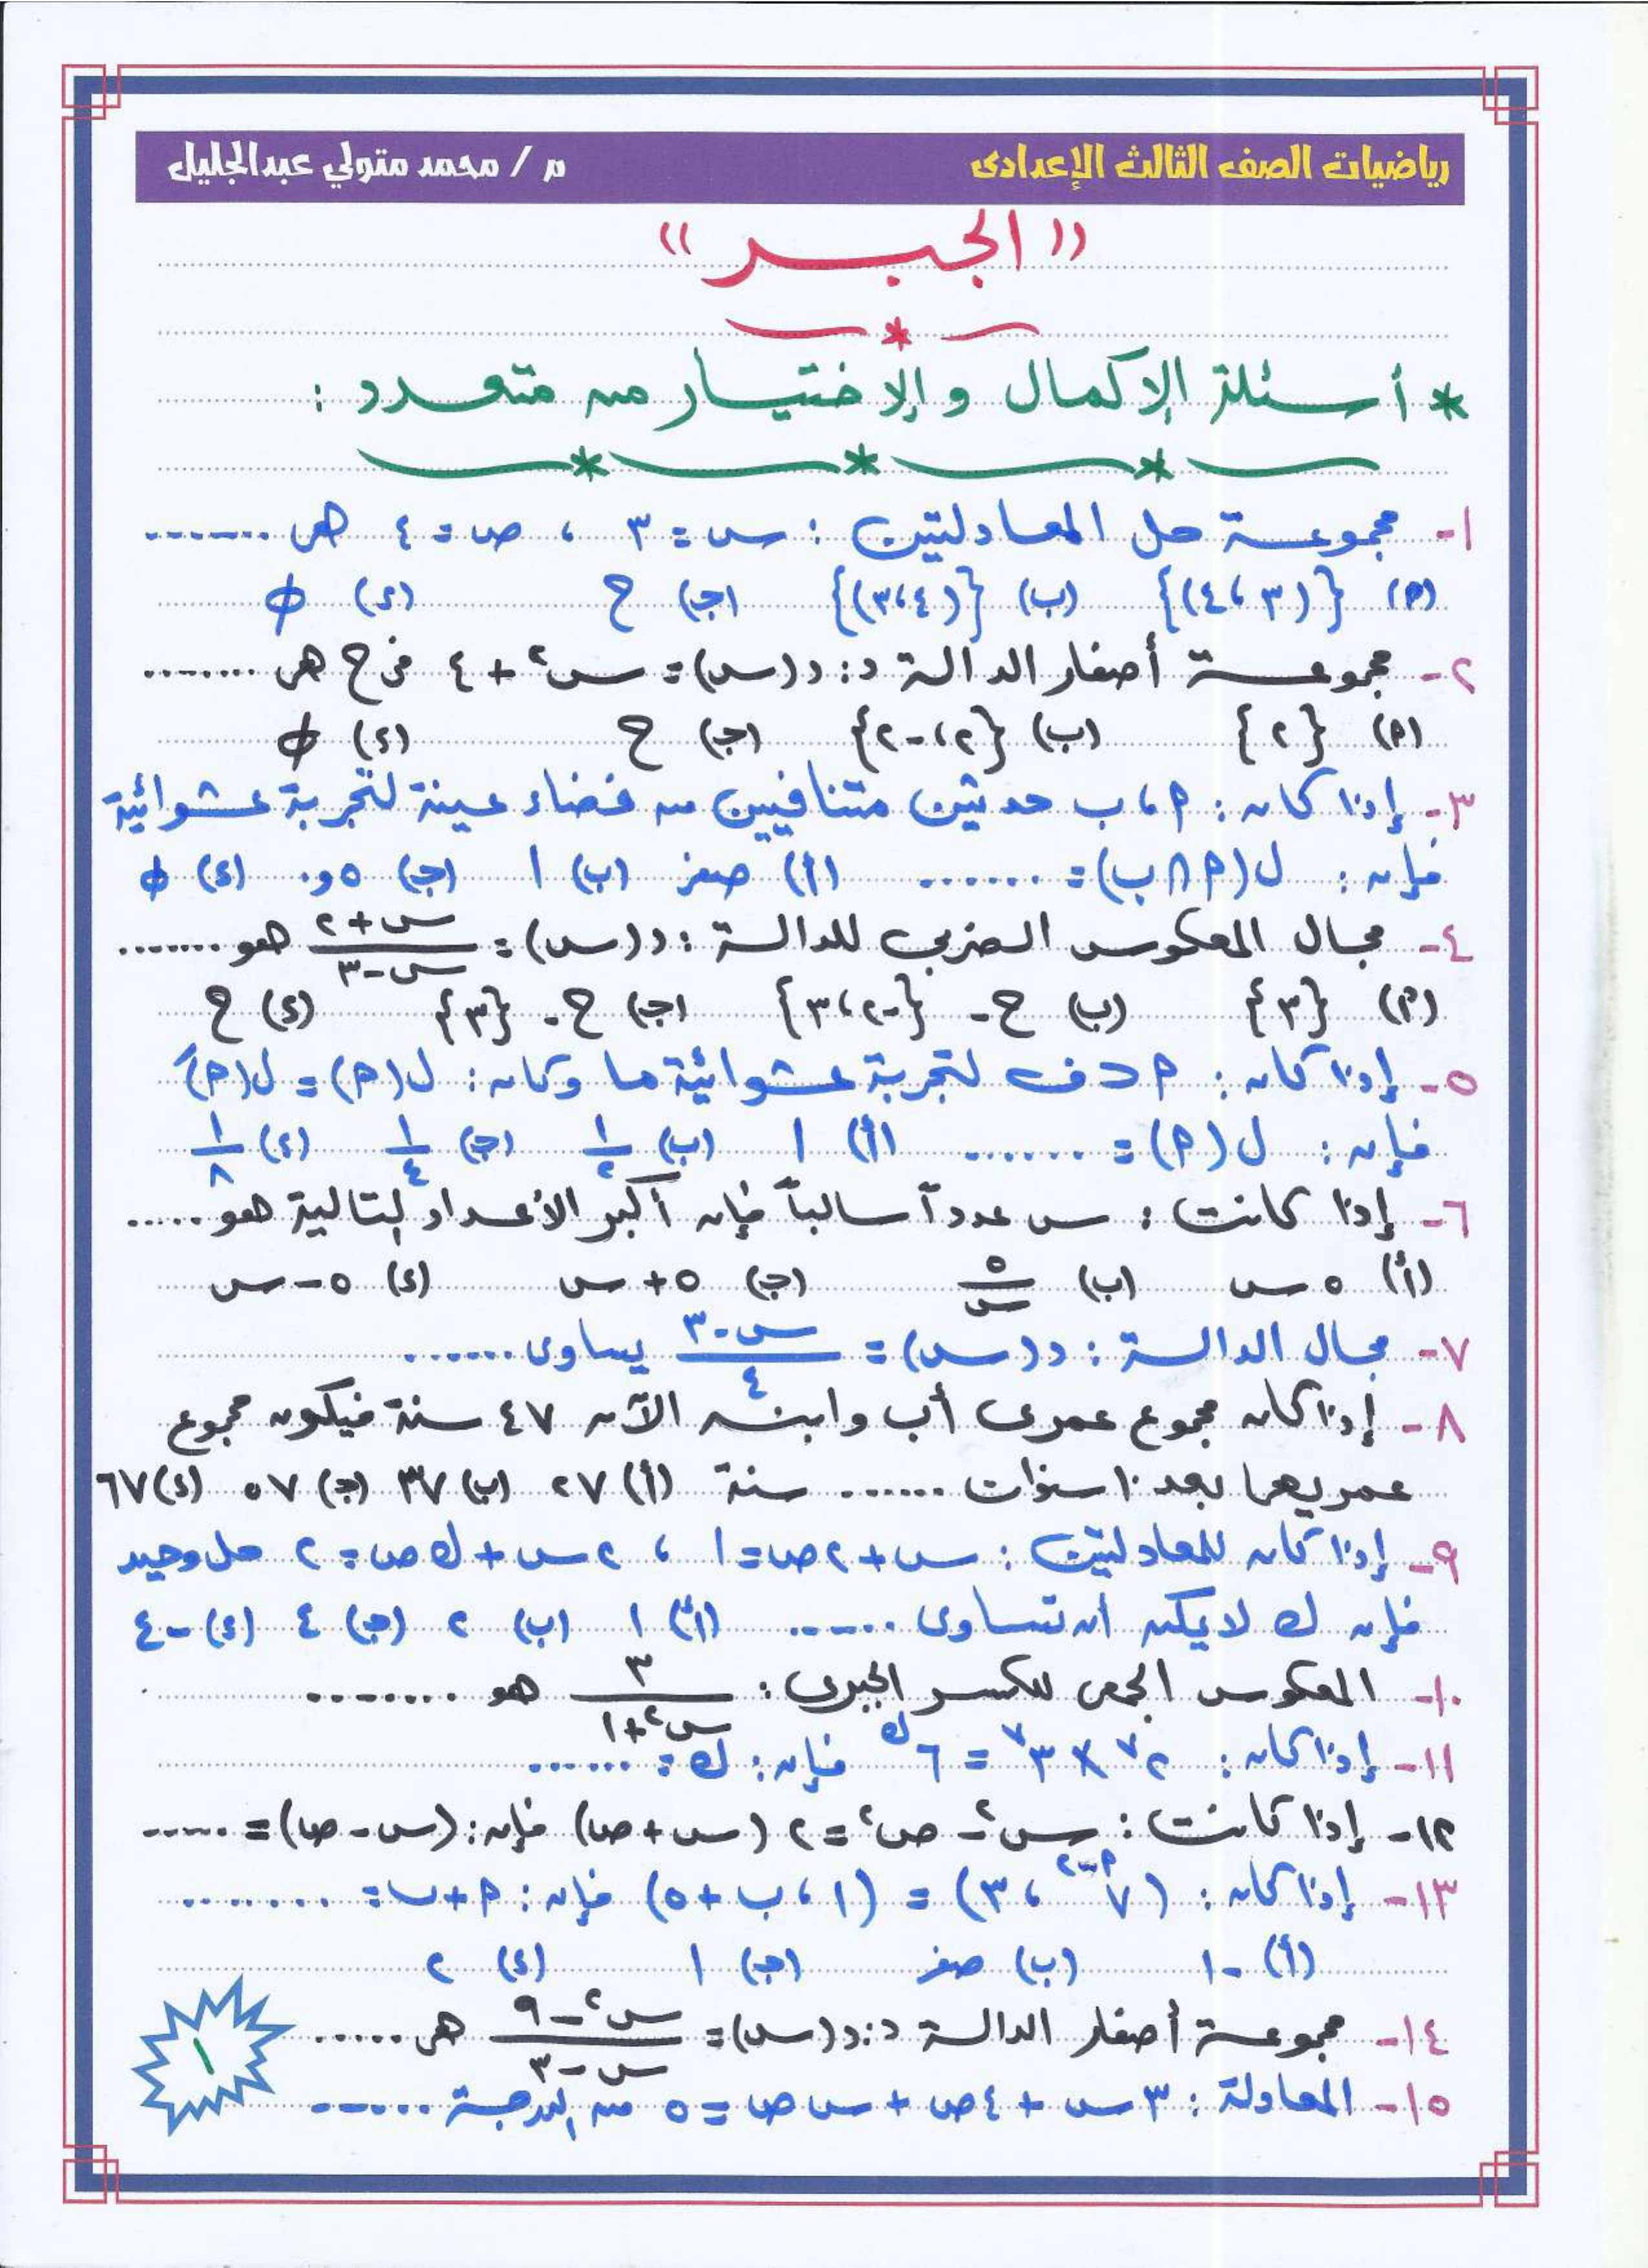 رياضيات الصف الثالث الإعدادى
م / محمد متولي عبدالجليل
(( الجبــر ))
* أسئلة الإكمال والإختيار من متعدد :
١- مجموعة حل المعادلتين : س = ٣ ، ص = ٤ هى .......
(P) {(٣ ، ٤)} (ب) {(٤ ، ٣)} (جـ) ح (د) φ
٢- مجموعة أصفار الدالة د : د(س) = س² + ٤ فى ح هى ........
(P) {٢} (ب) {٢ ، -٢} (جـ) ح (د) φ
٣- إذا كان : P ، ب حدثين متنافيين من فضاء عينة لتجربة عشوائية
فإن : ل(P ∩ ب) = ....... (أ) صفر (ب) ١ (جـ) ٥و٠ (د) φ
٤- مجال المعكوس الضربى للدالة : د(س) = (س + ٢)/(س - ٣) هو .......
(P) {٣} (ب) ح - {-٢ ، ٣} (جـ) ح - {٣} (د) ح
٥- إذا كان : P ⊂ ف لتجربة عشوائية ما وكان : ل(P) = ل(Ṕ)
فإن : ل(P) = ....... (أ) ١ (ب) ١/٢ (جـ) ١/٤ (د) ١/٨
٦- إذا كانت : س عدداً سالباً فإن أكبر الأعداد التالية هو .....
(أ) ٥ س (ب) ٥/س (جـ) ٥ + س (د) ٥ - س
٧- مجال الدالة : د(س) = (س - ٣)/٤ يساوى ......
٨- إذا كان مجموع عمرى أب وابنه الآن ٤٧ سنة فيكون مجموع
عمريهما بعد ١٠ سنوات ...... سنة (أ) ٢٧ (ب) ٣٧ (جـ) ٥٧ (د) ٦٧
٩- إذا كان للمعادلتين : س + ٢ص = ١ ، ٢س + ك ص = ٢ حل وحيد
فإن ك لا يمكن أن تساوى ...... (أ) ١ (ب) ٢ (جـ) ٤ (د) -٤
١٠- المعكوس الجمعى للكسر الجبرى : ٣/(س² + ١) هو ........
١١- إذا كان : ٢⁷ × ٣⁷ = ٦ᵏ فإن : ك = .......
١٢- إذا كانت : س² - ص² = ٢ (س + ص) فإن : (س - ص) = .....
١٣- إذا كان : (٧^(P-٢) ، ٣) = (١ ، ب + ٥) فإن : P + ب = ........
(أ) -١ (ب) صفر (جـ) ١ (د) ٢
١٤- مجموعة أصفار الدالة د : د(س) = (س² - ٩)/(س - ٣) هى .....
١٥- المعادلة : ٣س + ٤ص + س ص = ٥ من الدرجة ......
١